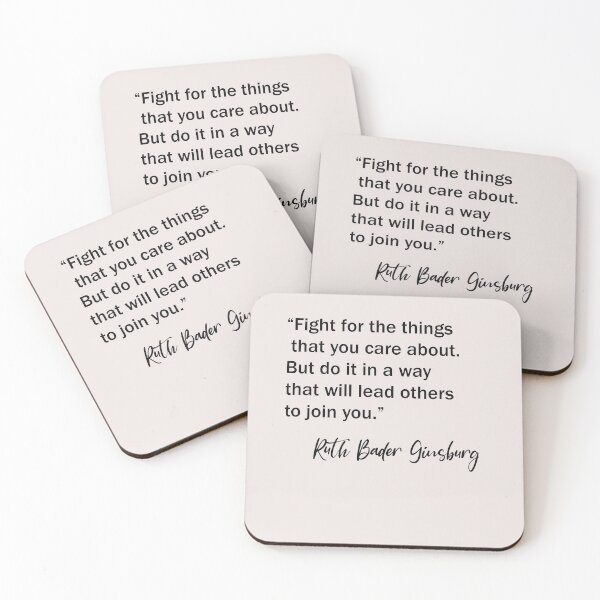 “Fight for the things
that you care about.
But do it in a way
that will lead others
to join you.”
“Fight for the things
that you care about.
But do it in a way
that will lead others
to join you.”
Ruth Bader Ginsburg
“Fight for the things
that you care about.
But do it in a way
that will lead others
to join you.”
Ruth Bader
“Fight for the things
that you care about.
But do it in a way
that will lead others
to join you.”
Ruth Bader Ginsburg